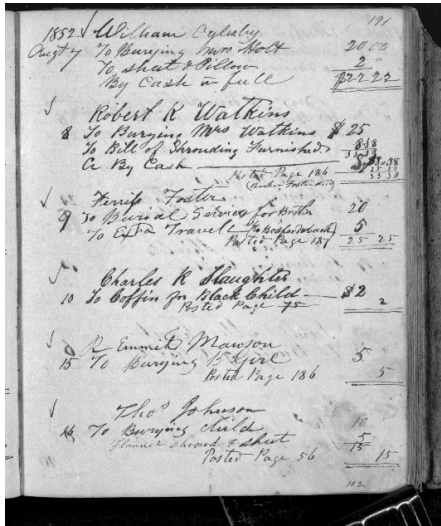 191
1852 William Oglesby
Augt 7 To Burying Mrs Holt 20.00
To shut & Pillow 2
By Cash in full $22 22
Robert R Watkins
8 To Burying Mrs Watkins $25
To Bill of Shrouding Furnished 8 38
Cr By Cash
Posted Page 186
Ferriss Foster
9 To Burial Services for 20
To Extra Travell 5
Posted Page 187 25 25
Charles R Slaughter
10 To Coffin for Black Child $2
Posted Page 75 2
Emmit Mawson
15 To Burying Girl 5
Posted Page 186 5
Thos Johnson
16 To Burying Child 10
Flannel shroud & shut 5
15
Posted Page 56 15
102